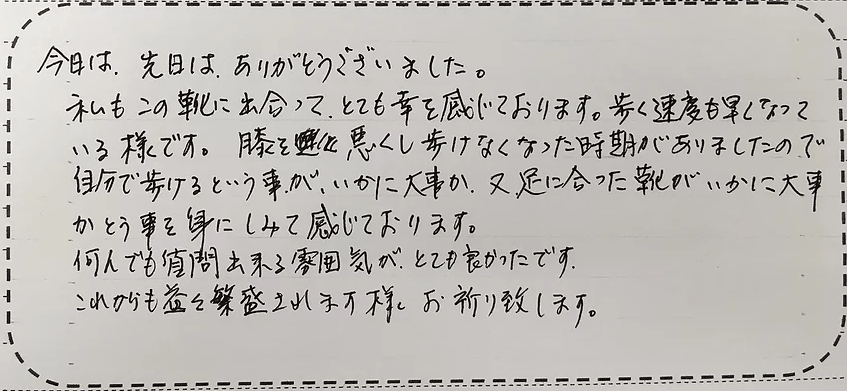 今日は、先日は、ありがとうございました。
私もこの靴に出合って、とても幸を感じております。歩く速度も早くなって
いる様です。膝を悪くし歩けなくなった時期がありましたので
自分で歩けるという事が、いかに大事か、又、足に合った靴がいかに大事
かとう事を身にしみて感じております。
何んでも質問出来る雰囲気が、とても良かったです、
これからも益々繁盛されます様、お祈り致します。